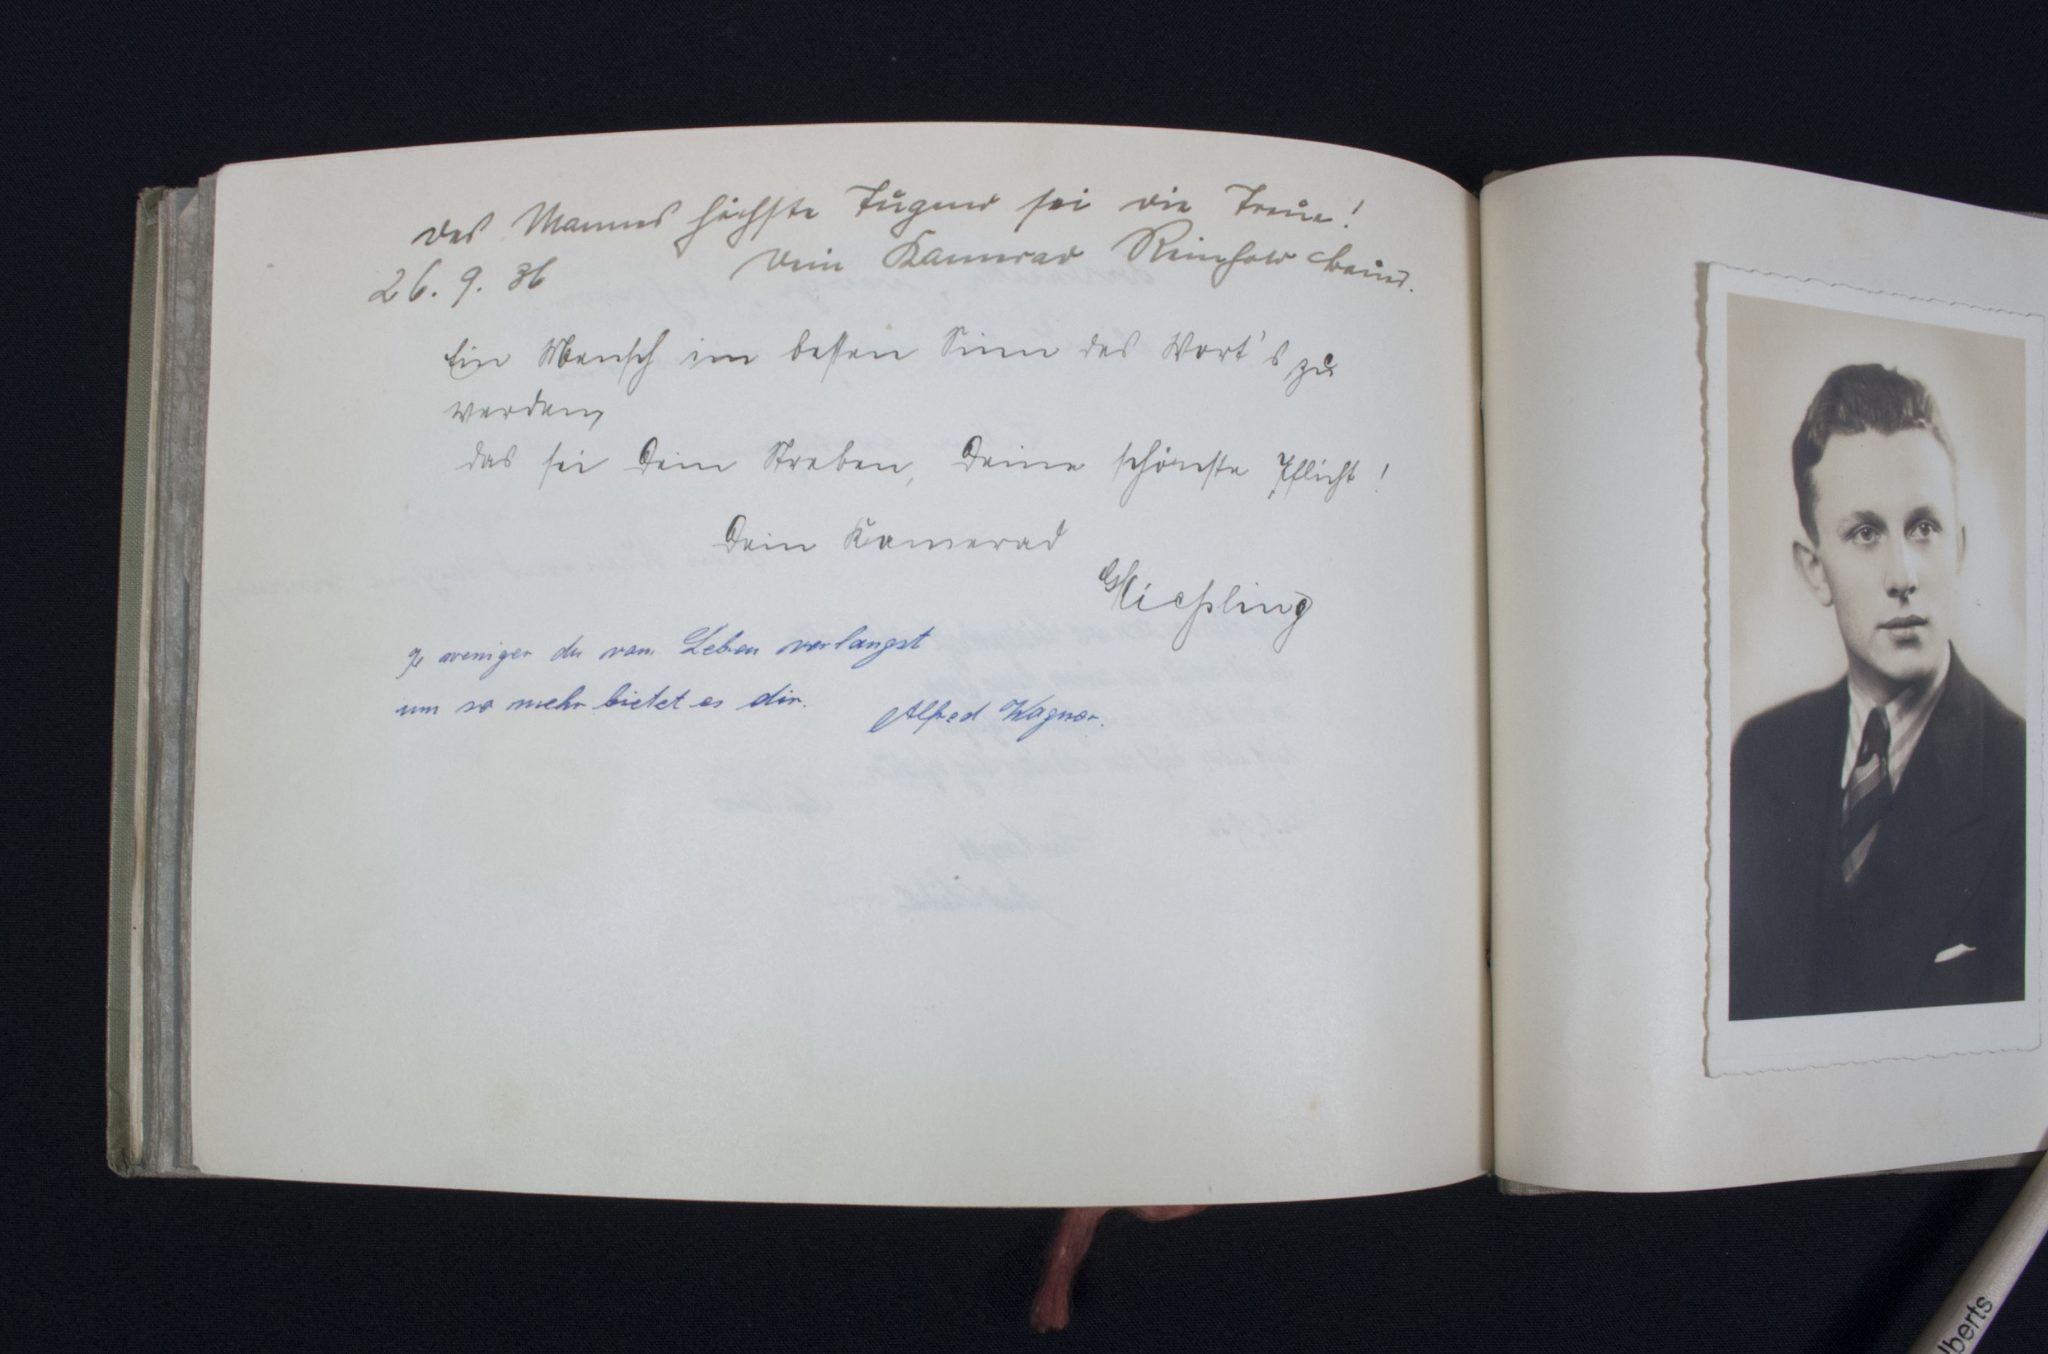 Des Mannes höchste Tugend sei die Treue!
26. 9. 36 Dein Kamerad Reinhold
Ein Mensch im besten Sinn des Wort's zu
werden,
das sei Dein Streben, Deine schönste Pflicht!
Dein Kamerad
Kießling
Je weniger du vom Leben verlangst
um so mehr bietet es dir. Alfred Wagner.
lberts